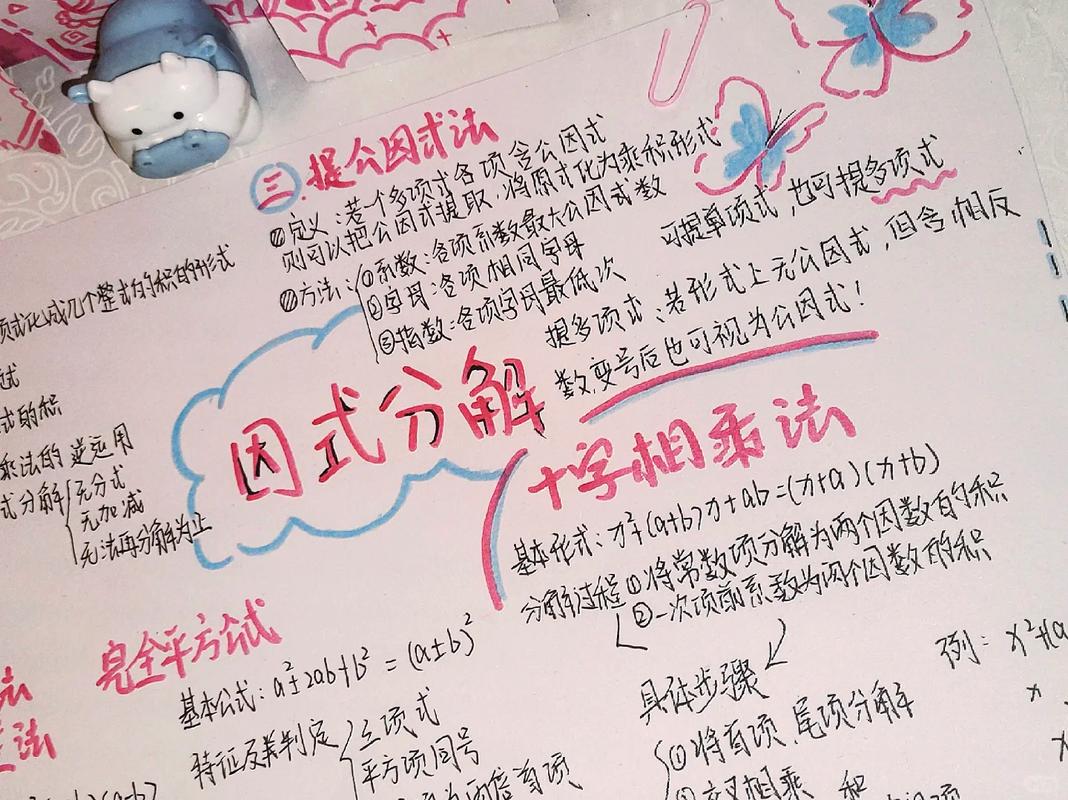 三.提公因式法
①定义:若一个多项式各项含公因式
则可以把公因式提取,将原式化为乘积形式
②方法:①系数:各项系数最大公因式数
②字母:各项相同字母
③指数:各项字母最低次
可提单项式,也可提多项式
提多项式:若形式上无公因式,但含相反
数,变号后也可视为公因式!
项式化成几个整式的积的形式
式的积
乘法的逆运用
式分解 无分式
无加减
无法再分解为止
因式分解
十字相乘法
基本形式:x²+(a+b)x+ab=(x+a)(x+b)
分解过程①将常数项分解为两个因数的积
②一次项前系数为两个因数的积
具体步骤
①将首项,尾项分解
交叉相乘 和
例:x²+(a
x
完全平方公式
基本公式:a²±2ab+b²=(a±b)²
特征及其判定 三项式
平方项同号
首项
法
(a-b)